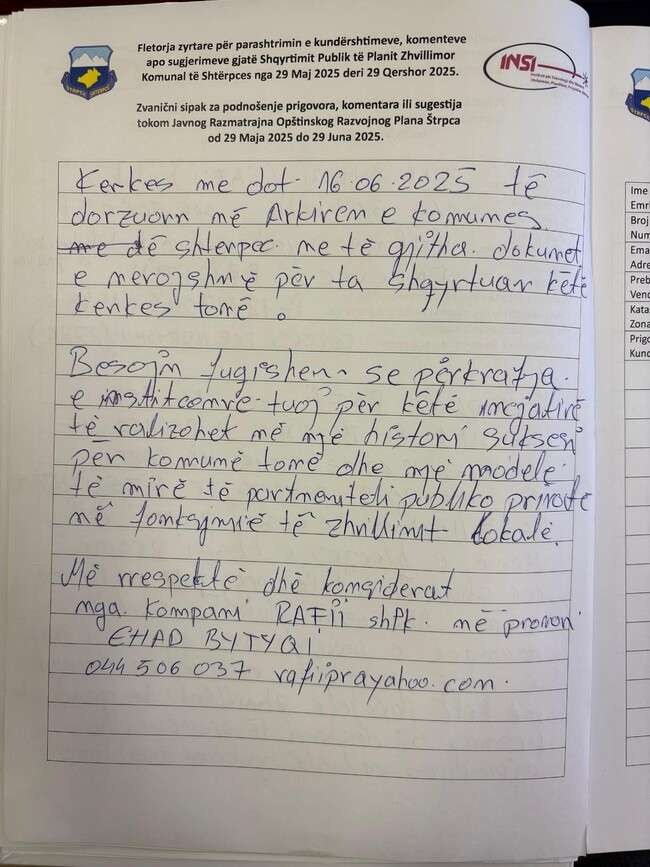 Fletorja zyrtare për parashtrimin e kundërshtimeve, komenteve
apo sugjerimeve gjatë Shqyrtimit Publik të Planit Zhvillimor
Komunal të Shtërpces nga 29 Maj 2025 deri 29 Qershor 2025.
Zvanični sipak za podnošenje prigovora, komentara ili sugestija
tokom Javnog Razmatrajna Opštinskog Razvojnog Plana Štrpca
od 29 Maja 2025 do 29 Juna 2025.
INSI
Kerkes me dat. 16.06.2025 të
dorzuorn më Arkirem e komunes.
shterpcc. me të gjitha. dokumet
e merojshmë për ta shqyrtuar këtë
kerkes tonë.
Besojm fugishem se përkratja.
e tuoj për këtë
të ralizohet më një histori suksesi
për komumë tomë dhe një modele
të mirë të partmeriteti publiko privatë
më të zhvillimit Lokalë.
Më rrespektë dhë komsiderat
nga. Kompani RAFII shPk. më pronori
EHAD BYTYQI
044 506 037 rafiiprayahoo.com.
Ime
Emri
Broj
Num
Ema
Adre
Preb
Vend
Kata
Zona
Prigo
Kund